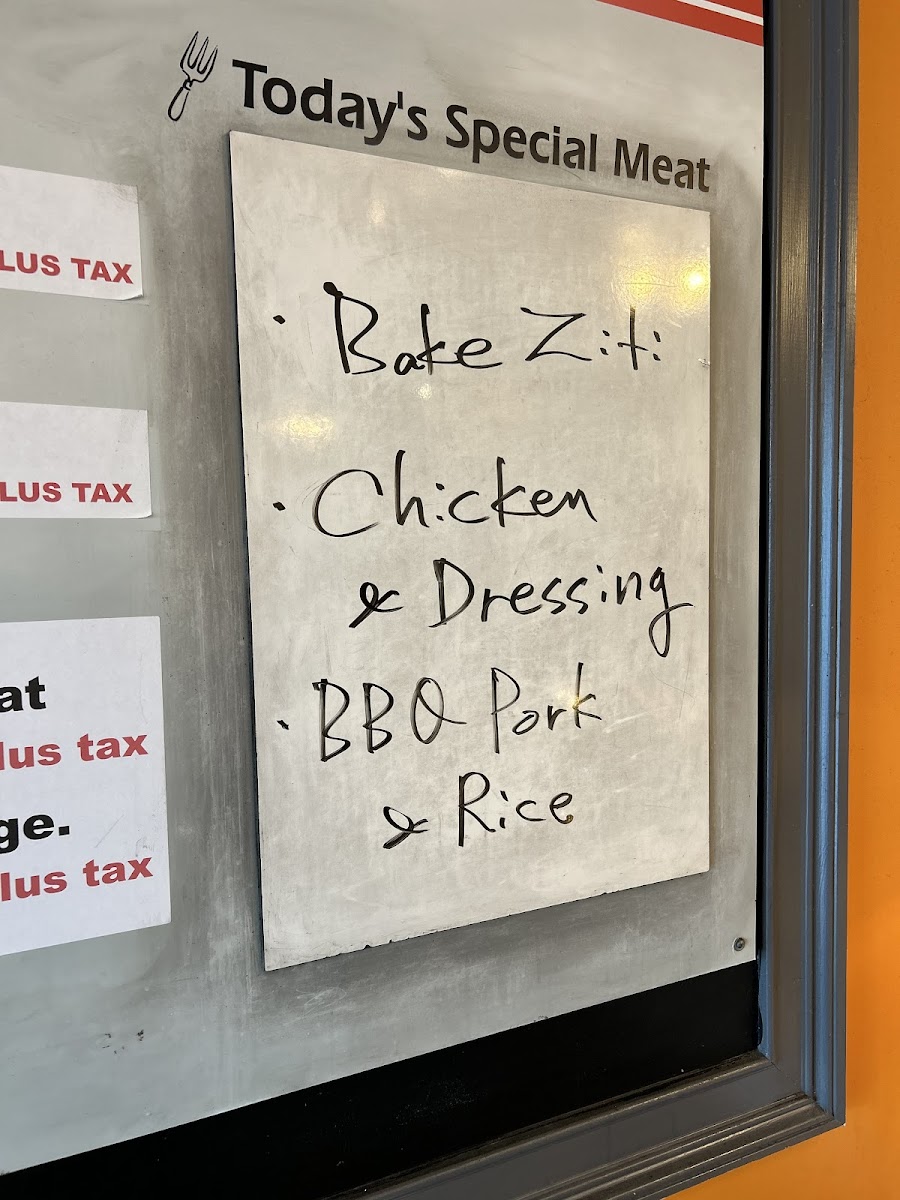 Today's Special Meat
· Bake Ziti
· Chicken
& Dressing
· BBQ Pork
& Rice
LUS TAX
LUS TAX
at
lus tax
ge.
lus tax